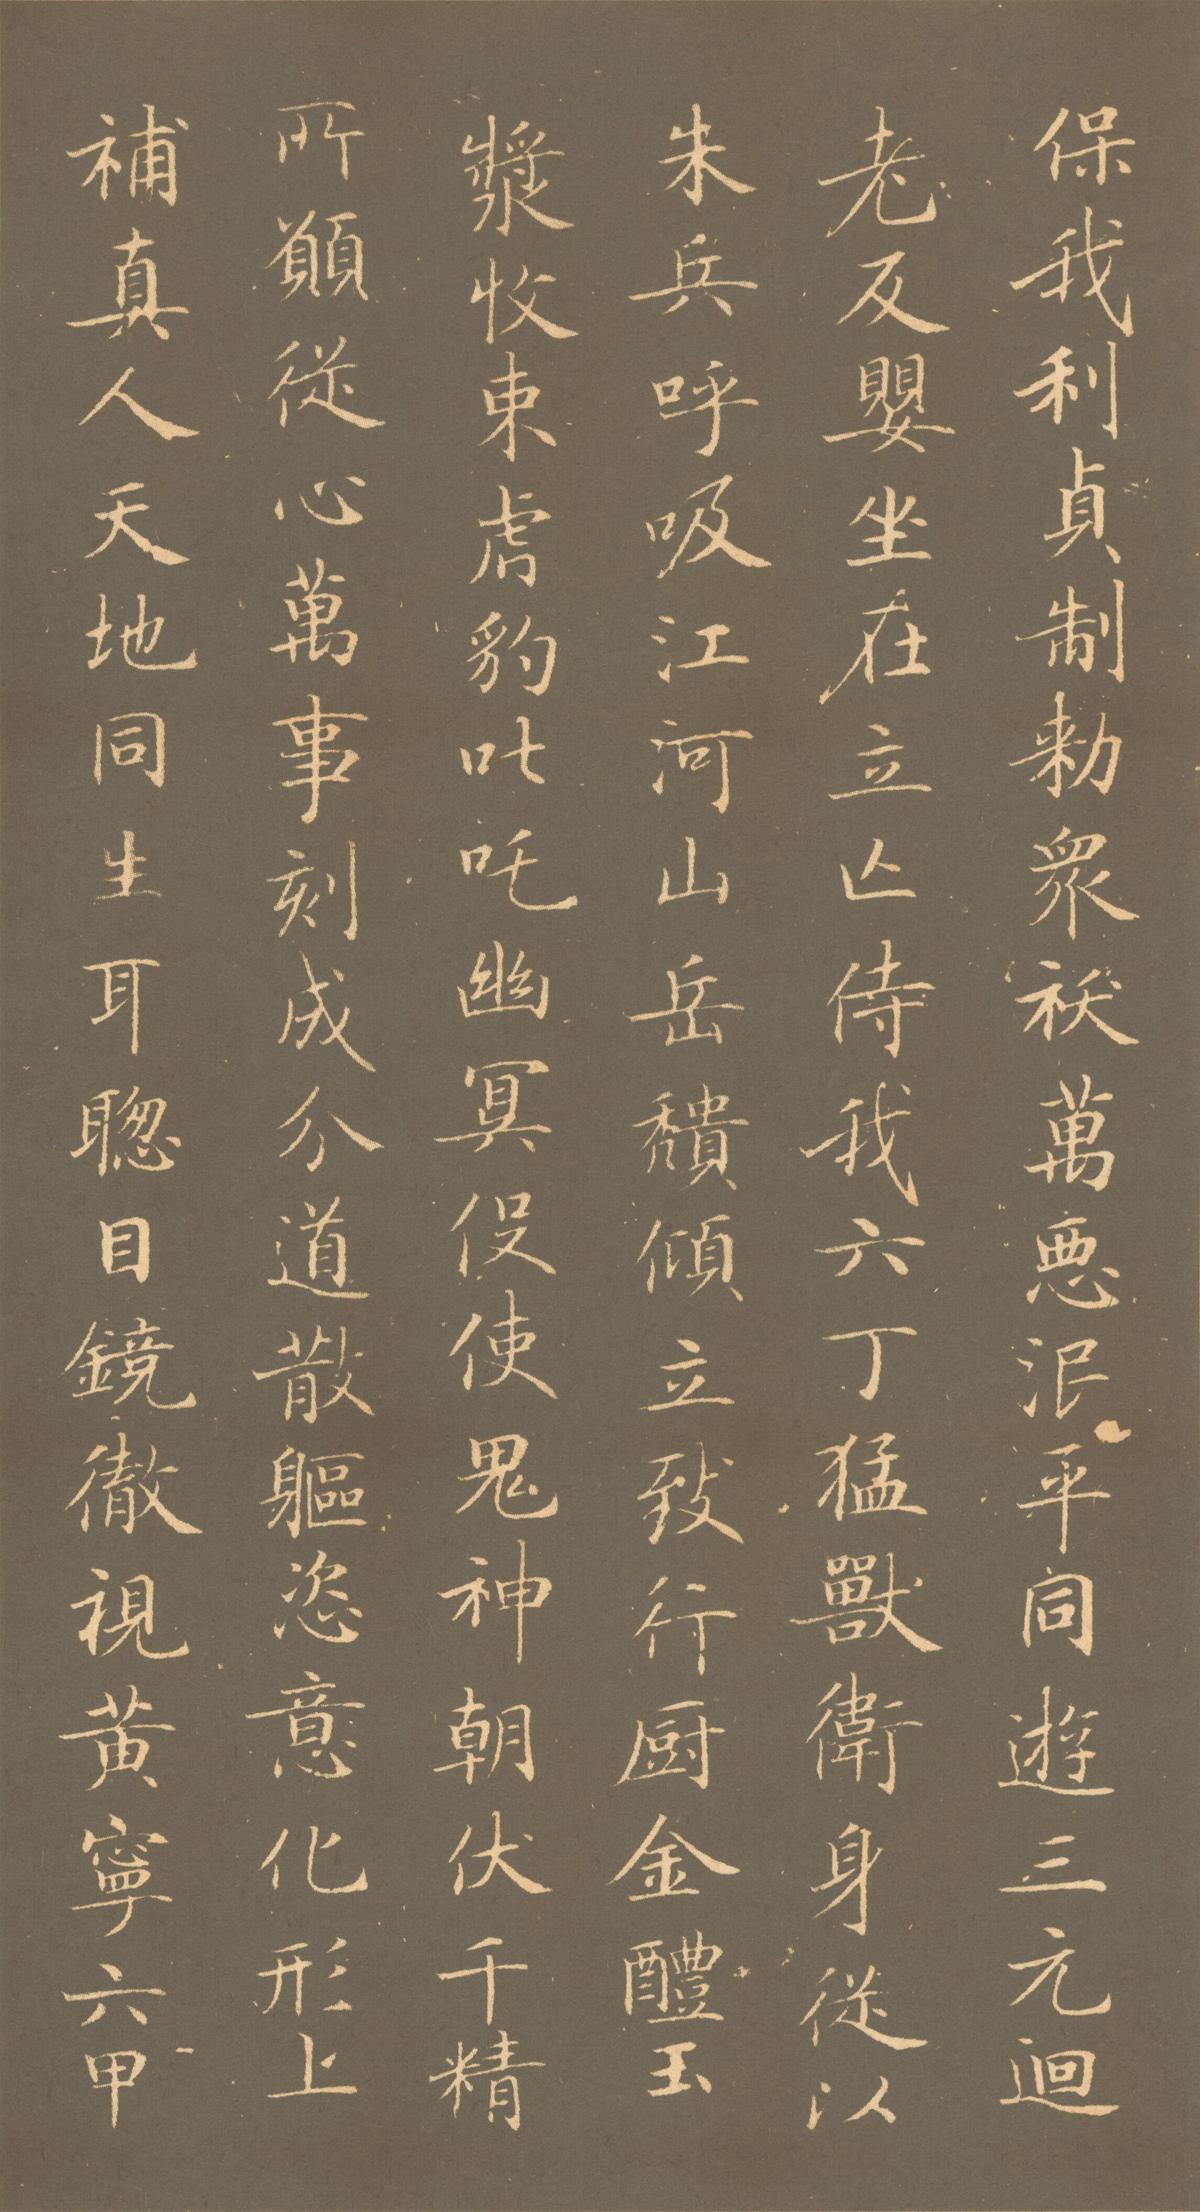 保我利貞制勑衆祅萬惡泯平同遊三元迴
老反嬰坐在立亾侍我六丁猛獸衛身從以
朱兵呼吸江河山岳穨傾立致行厨金醴玉
漿收束虎豹叱吒幽冥役使鬼神朝伏千精
所願從心萬事刻成分道散軀恣意化形上
補真人天地同生耳聦目鏡徹視黃寧六甲